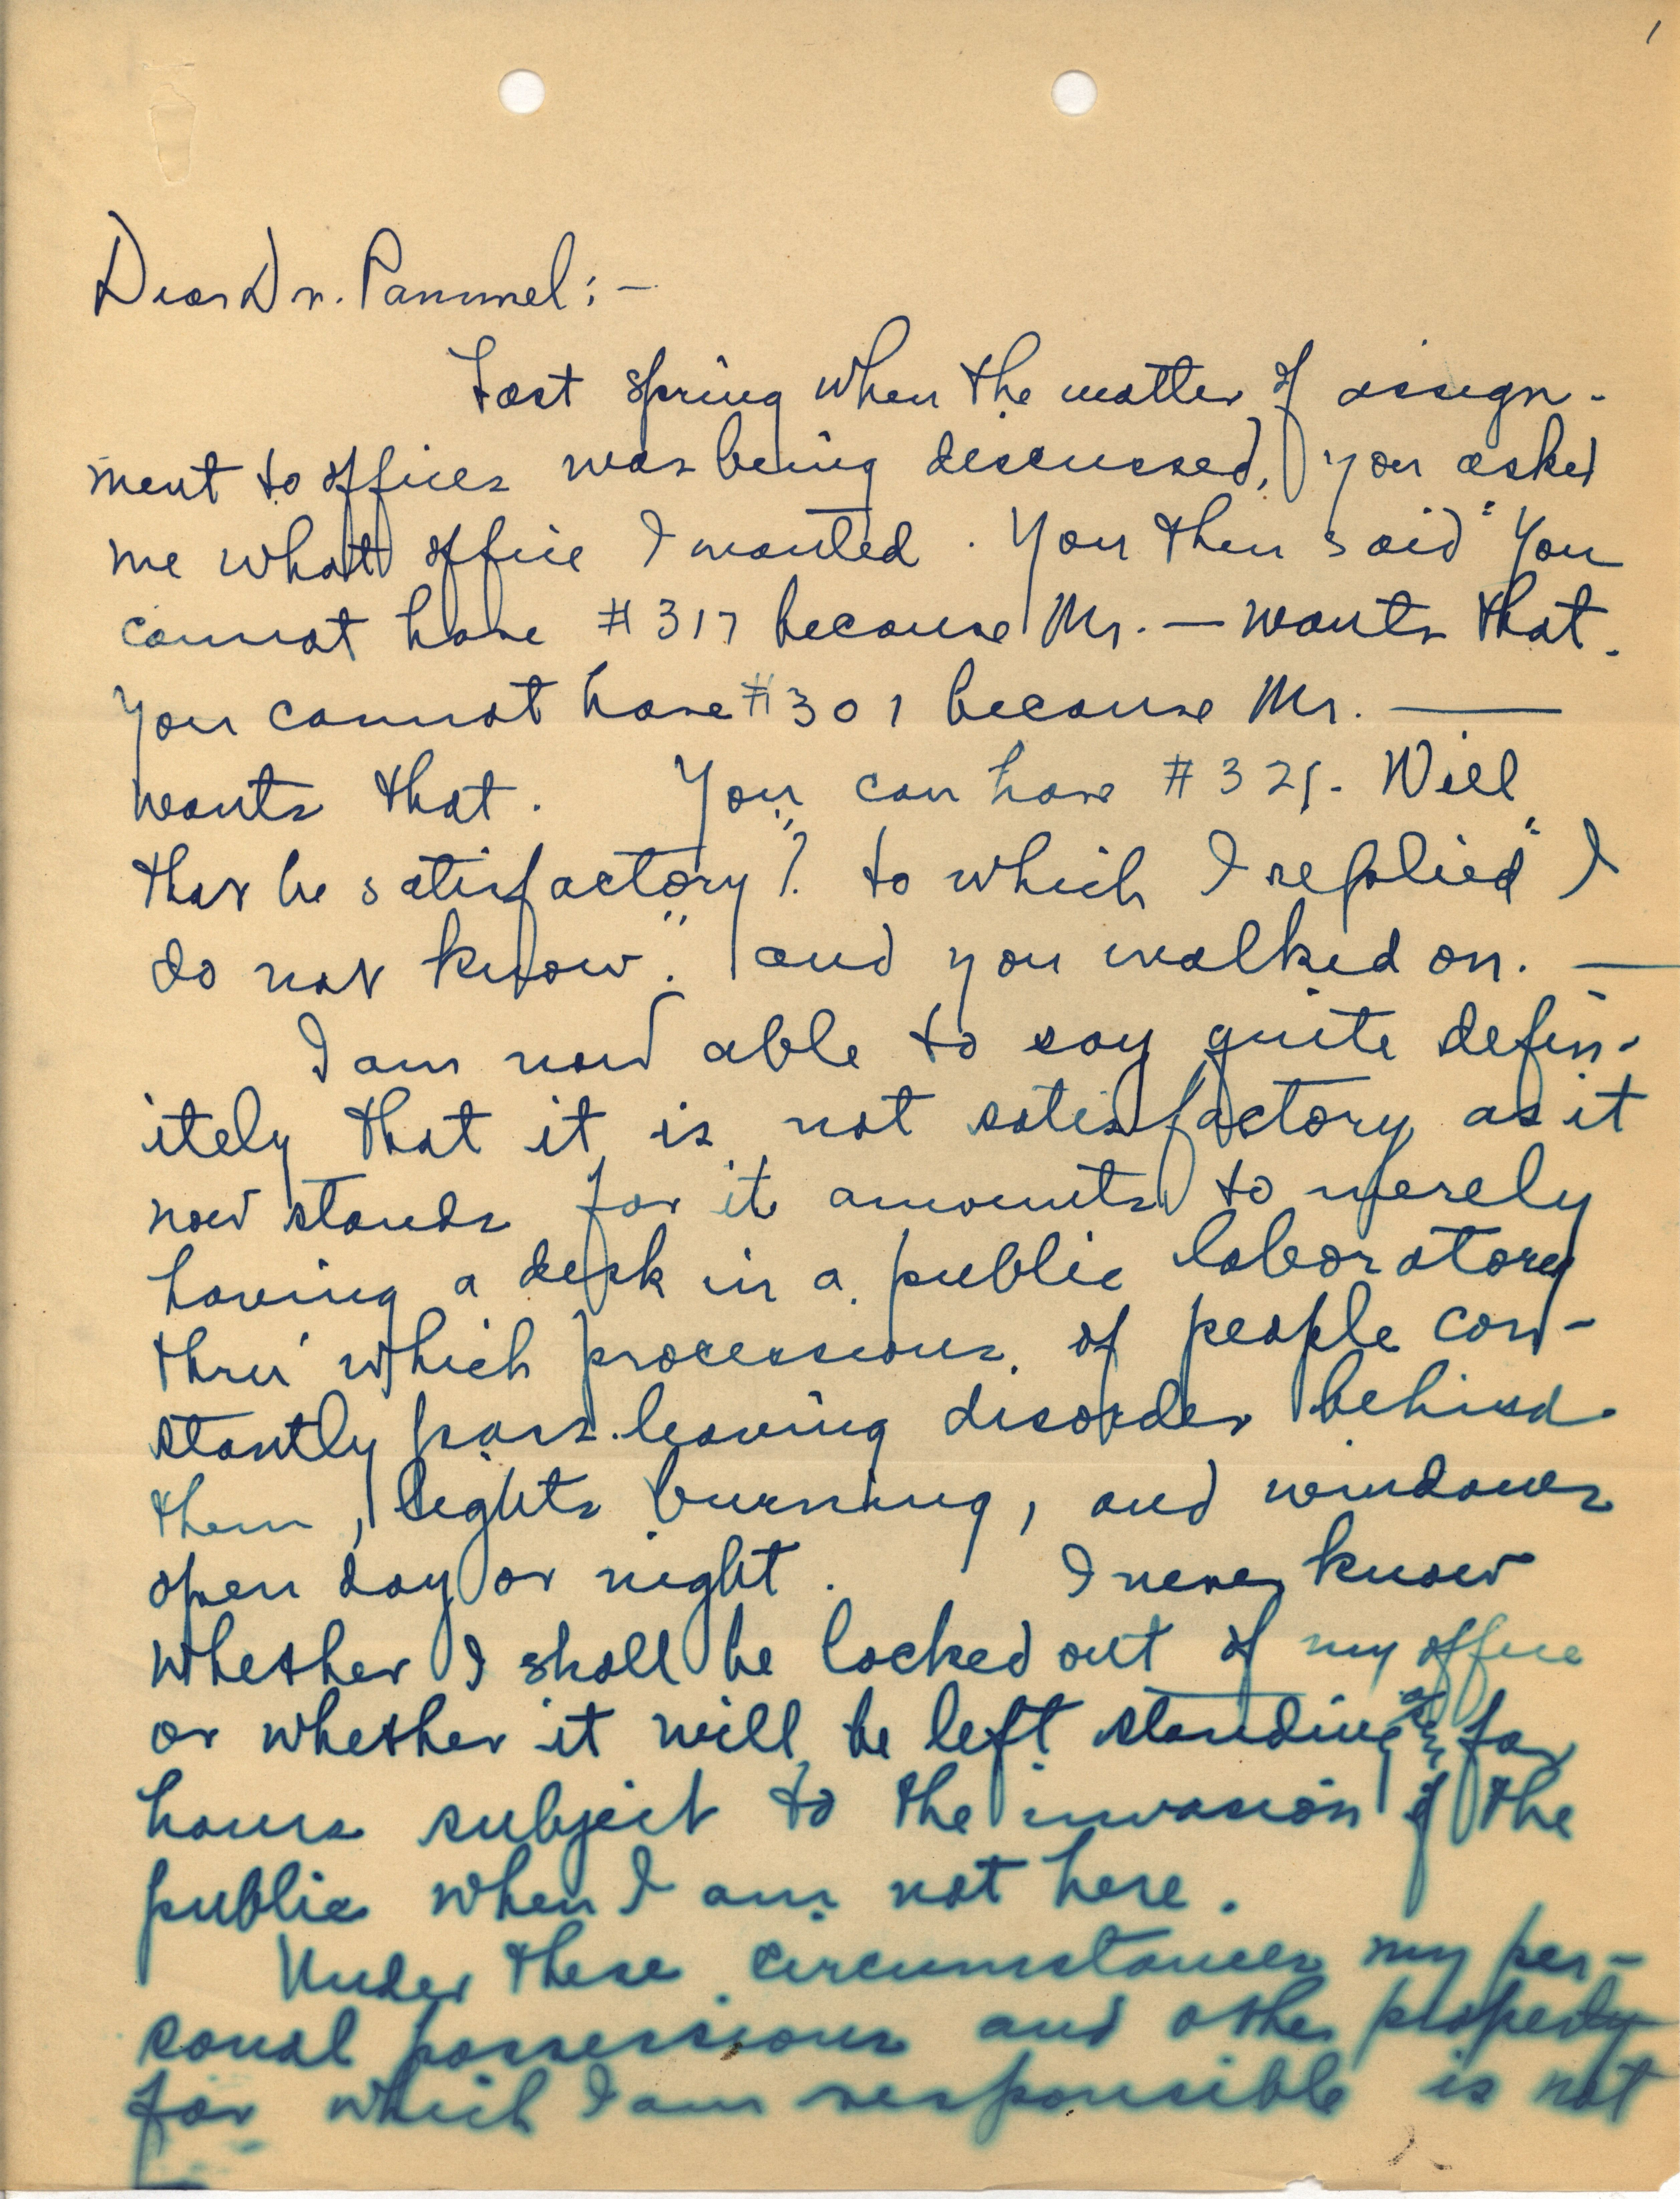 1
Dear Dr. Pammel:-
Last spring when the matter of assign-
ment to offices was being discussed, you asked
me what office I wanted. You then said "You
cannot have #317 because Mr. — wants that.
You cannot have #301 because Mr. ——
wants that. You can have #321. Will
that be satisfactory"? to which I replied "I
do not know". and you walked on. —
I am now able to say quite defin-
itely that it is not satisfactory as it
now stands for it amounts to merely
having a desk in a public laboratory
thru' which processions of people con-
stantly pass leaving disorder behind
them, lights burning, and windows
open day or night. I never know
whether I shall be locked out of my office
or whether it will be left standing open for
hours subject to the invasion of the
public when I am not here.
Under these circumstances my per-
sonal possessions and other property
for which I am responsible is not